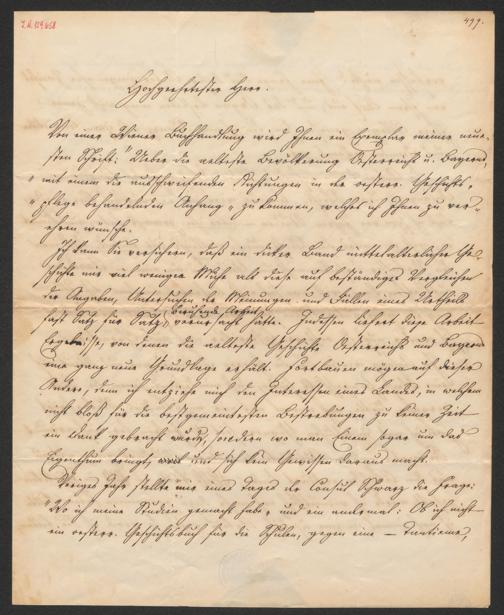 I.N. 129.658
499.
Hochgeehrtester Herr.
Von einer Wiener Buchhandlung wird Ihnen ein Exemplar meiner neue-
sten Schrift: "Ueber die aelteste Bevölkerung Oesterreichs u. Bayerns,
"mit einem die ausschweifenden Richtungen in der oesterr. Geschichts-
"pflege behandelnden Anhang" zu kommen, welches ich Ihnen zu ver-
ehren wünsche.
Ich kann Sie versichern, daß ein dicker Band mittelalterlicher Ge-
schichte mir viel weniger Mühe als diese auf beständiges Vergleichen
der Angaben, Untersuchen der Meinungen und Fällen eines Urtheils
fast Satz für Satz, beruhende Arbeit verursacht hätte. Indessen liefert diese Arbeit
Ergebnisse, von denen die aelteste Geschichte Oesterreichs und Bayerns
eine ganz neue Grundlage erhält. Fortbauen mögen auf dieser
Andere, denn ich entziehe mich den Interessen eines Landes, in welchem
nicht bloß für die bestgemeintesten Bestrebungen zu keiner Zeit
ein Dank gebracht wurde, sondern wo man Einen sogar um das
Eigenthum bringt, und sich kein Gewissen daraus macht.
Voriges Jahr stellte mir eines Tages der Consul Schwarz die Frage:
"Wo ich meine Studien gemacht habe" und ein andermal: Ob ich nicht
ein oesterr. Geschichtsbuch für die Schulen, gegen eine — Tantieme,